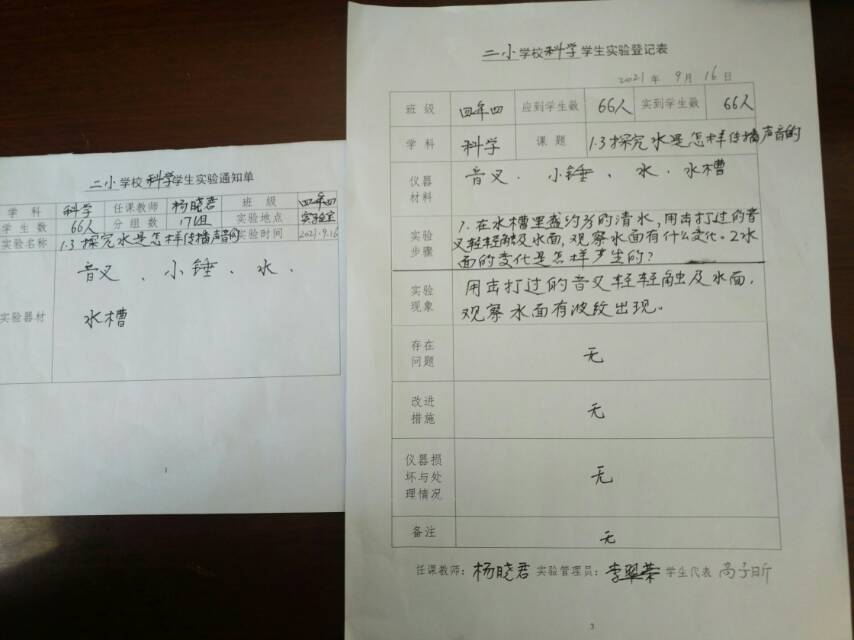 二小学校科学学生实验通知单
学科 科学 任课教师 杨晓君 班级 四年四
学生数 66人 分组数 17组 实验地点 实验室
实验名称 1.3探究水是怎样传播声音的 实验时间 2021.9.16
实验器材 音叉、小锤、水、
水槽
1
二小学校科学学生实验登记表
2021年9月16日
班级 四年四 应到学生数 66人 实到学生数 66人
学科 科学 课题 1.3探究水是怎样传播声音的
仪器材料 音叉、小锤、水、水槽
实验步骤 1.在水槽里盛约
的清水,用击打过的音
叉轻轻触及水面,观察水面有什么变化。2.水
面的变化是怎样产生的?
实验现象 用击打过的音叉轻轻触及水面,
观察水面有波纹出现。
存在问题 无
改进措施 无
仪器损坏与处理情况 无
备注 无
任课教师:杨晓君 实验管理员:李翠荣 学生代表 高子昕
3